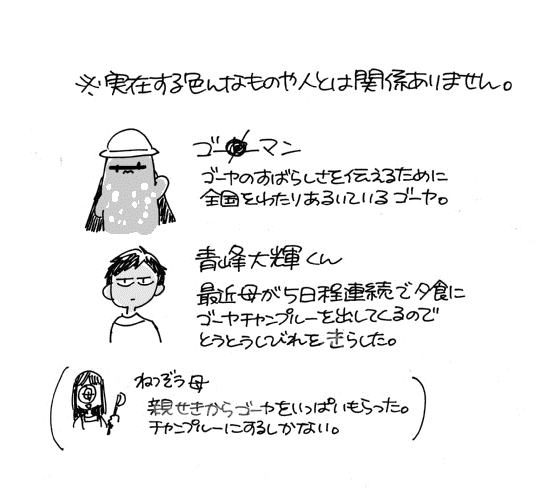 ※実在する色んなものや人とは関係ありません。
ゴーマン
ゴーヤのすばらしさを伝えるために
全国をわたりあるいているゴーヤ。
青峰大輝くん
最近母が5日程連続で夕食に
ゴーヤチャンプルーを出してくるので
とうとうしびれをきらした。
ねつぞう母
母
親せきからゴーヤをいっぱいもらった。
チャンプルーにするしかない。